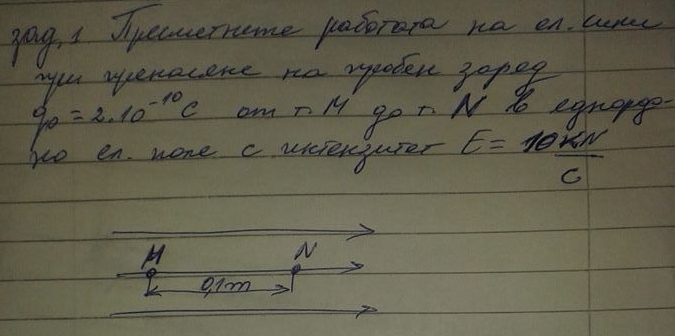 зад, 1 Пресметнете работата на ел. сили
при пренасяне на пробен заряд
q₀ = 2.10⁻¹⁰ C от т. M до т. N в еднород-
но ел. поле с интензитет E = 10 kN
C
M N
0,1m